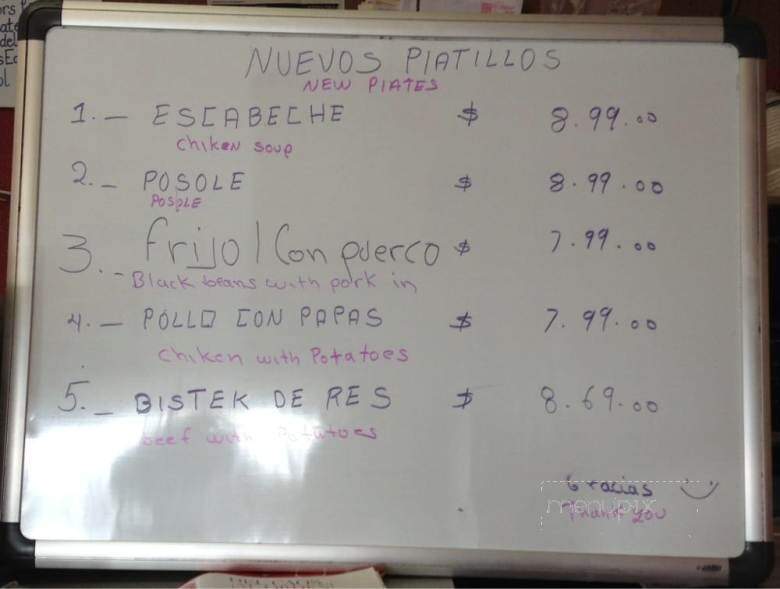 NUEVOS PIATILLOS
NEW PIATES
1.- ESCABECHE $ 8.99.00
chiken soup
2.- POSOLE $ 8.99.00
POSOLE
3.- frijol Con puerco $ 7.99.00
Black beans with pork in
4.- POLLO CON PAPAS $ 7.99.00
chiken with Potatoes
5.- BISTEK DE RES $ 8.69.00
beef with Potatoes
Gracias
Thank you
menupix